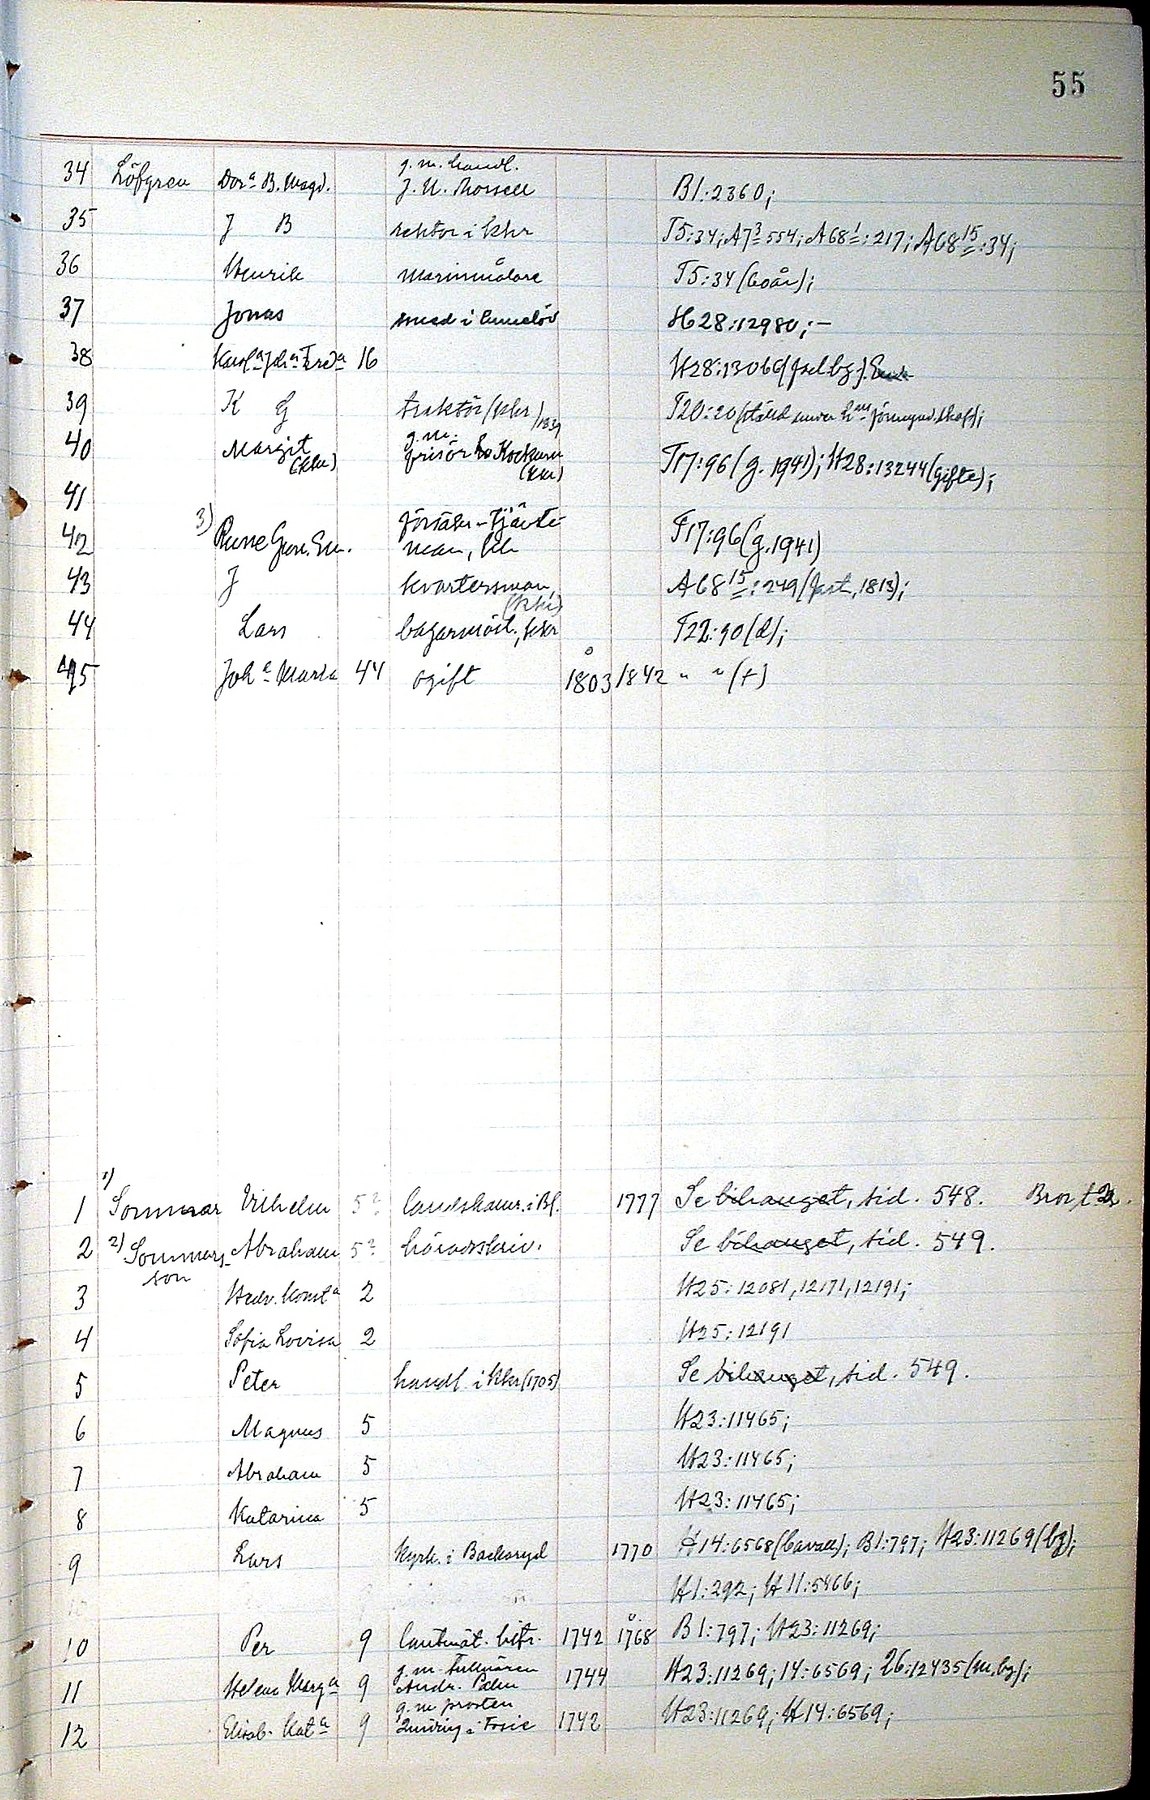 55
34 Löfgren Dorª B. Magd. g. m. handl.
J. N. Morsell B1:2360;
35 J B rektor i khr T5:34; A7³ 554; A68¹:217; A68¹⁵:34;
36 Henrik marinmålare T5:34 (60år);
37 Jonas smed i H28:12980; —
38 Karolª Johª Fredª 16 H28:13066
39 K G traktör (khr) 1839 T20:20
40 Margit (khr) g. m. frisör Kockum (khr) T17:96 (g. 1941); H28:13244 (gifte);
41
42 3) Rune man, F17:96 (g. 1941)
43 J kvartersman, A68¹⁵:249 (fast, 1813);
44 Lars bagarmäst., khr T22:90 (d);
45 Johª Maria 44 ogift 1803 1842 " " (†)
1 1) Sommar Vilhelm 5? landskamr. i Bl. 1777 Se bihanget, sid. 548. Bror t. 2.
2 2) Sommars- Abraham 5? häradsskriv. Se bihanget, sid. 549.
son
3 Hedv. Konstª 2 H25:12081, 12171, 12191;
4 Sofia Lovisa 2 H25:12191
5 Peter handl. i khr (1705) Se bihanget, sid. 549.
6 Magnus 5 H23:11465;
7 Abraham 5 H23:11465;
8 Katarina 5 H23:11465;
9 Lars kyrh. i Backaryd 1770 H14:6568 (Cavall); B1:797; H23:11269 (bg);
H1:292; H11:5466;
10 Per 9 lantmät. bitr. 1742 1768 B1:797; H23:11269;
11 Helena Margª 9 g. m. tullnären
Andr. Palm 1744 H23:11269; 14:6569; 26:12435 (m. bg);
12 Elisab. Katª 9 g. m prosten
Quiding i Fosie 1742 H23:11269; H14:6569;